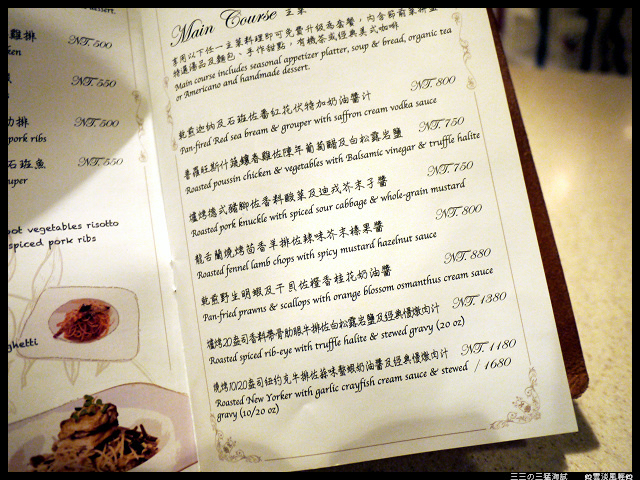 dessert.
雞排 NT. 500
ken
NT. 550
肋排 NT. 500
pork ribs
石斑魚 NT. 550
uper
oot vegetables risotto
spiced pork ribs
ghetti
Main Course 主菜
享用以下任一主菜料理即可免費升級為套餐，內含節前菜拼盤
特選湯品及麵包、手作甜點，有機茶或經典美式咖啡
Main course includes seasonal appetizer platter, soup & bread, organic tea
or Americano and handmade dessert.
NT. 800
乾煎迦納及石斑佐番紅花伏特加奶油醬汁
Pan-fired Red sea bream & grouper with saffron cream vodka sauce
NT. 750
普羅旺斯什蔬釀春雞佐陳年葡萄醋及白松露岩鹽
Roasted poussin chicken & vegetables with Balsamic vinegar & truffle halite
NT. 750
爐烤德式豬腳佐香料酸菜及迪戎芥末子醬
Roasted pork knuckle with spiced sour cabbage & whole-grain mustard
NT. 800
龍舌蘭燒烤茴香羊排佐辣味芥末榛果醬
Roasted fennel lamb chops with spicy mustard hazelnut sauce
NT. 880
乾煎野生明蝦及干貝佐橙香桂花奶油醬
Pan-fried prawns & scallops with orange blossom osmanthus cream sauce
NT. 1380
爐烤20盎司香料帶骨肋眼牛排佐白松露岩鹽及經典慢燉肉汁
Roasted spiced rib-eye with truffle halite & stewed gravy (20 oz)
NT. 1180
燒烤10/20盎司紐約克牛排佐蒜味螯蝦奶油醬及經典慢燉肉汁
Roasted New Yorker with garlic crayfish cream sauce & stewed / 1680
gravy (10/20 oz)
三三の三猛海賊
雲淡風輕